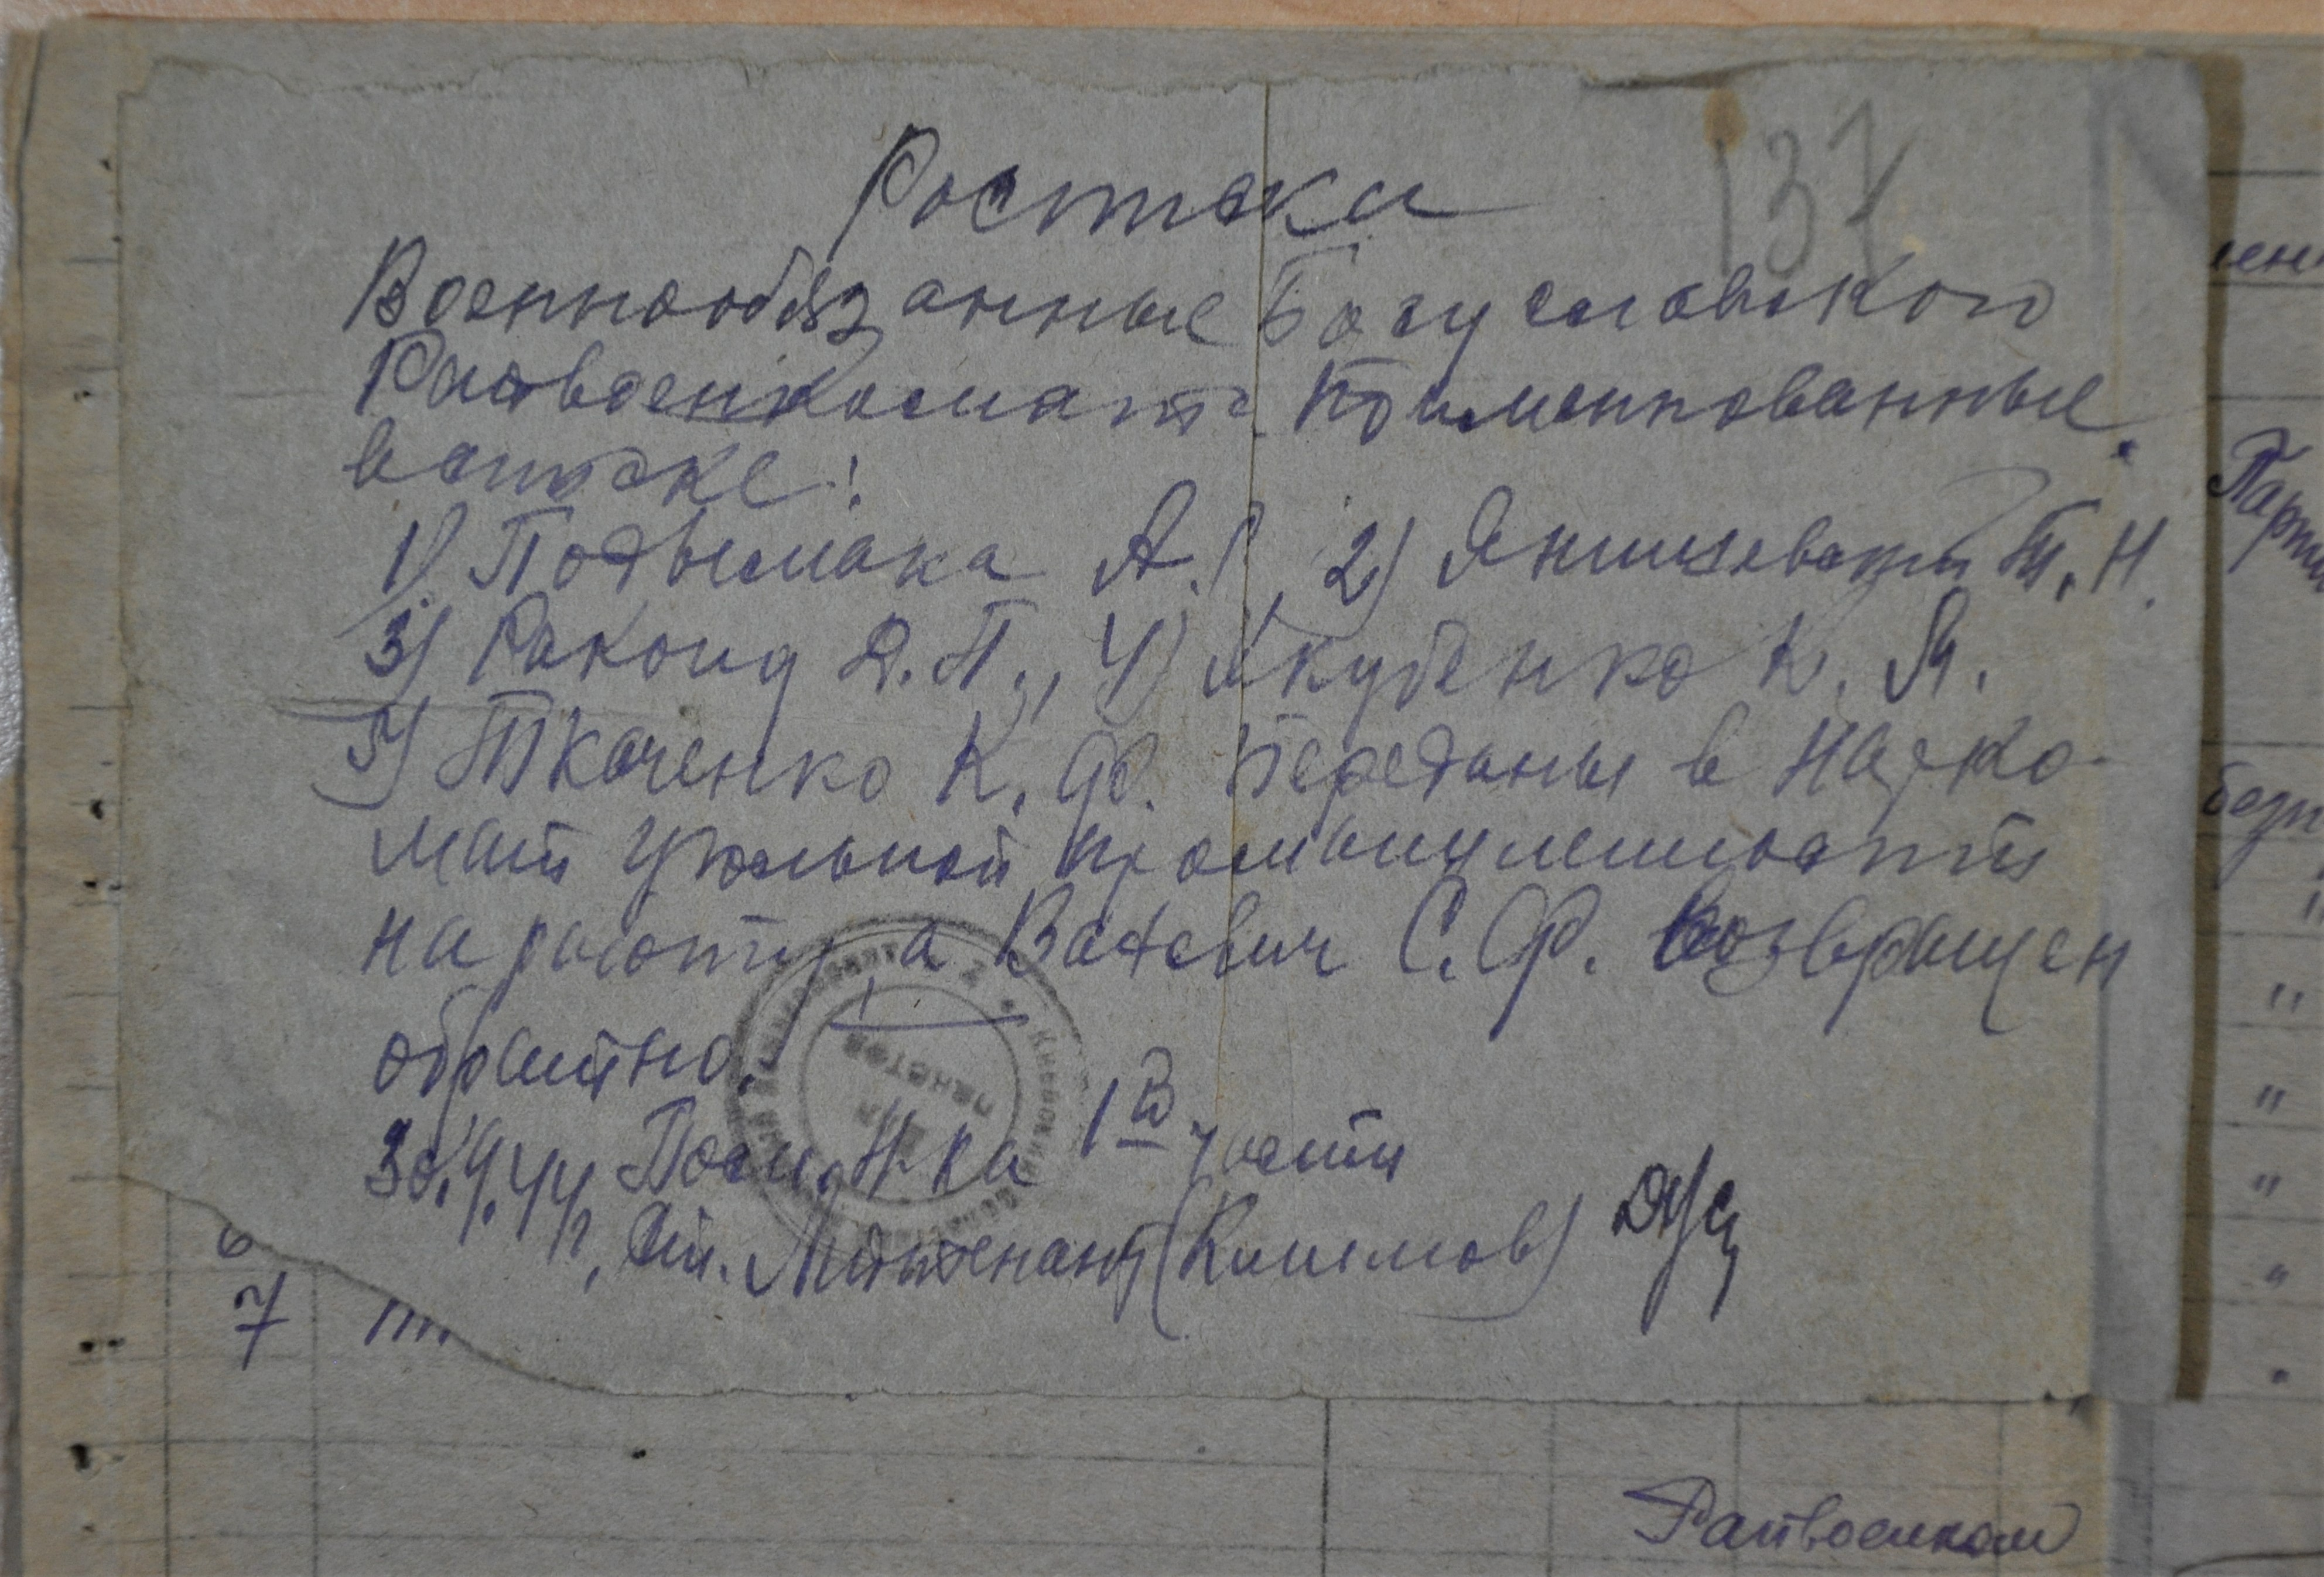 137
Расписка
Военнообязанные Богуславского
Райвоенкомата поименованные
в списке:
1) Подымака А. 2) Янишевский Т. Н.
3) Ракоид Д. П., 4) Якубенко К. Я.
5) Ткаченко К. Ф. переданы в Нарко-
мат угольной промышленности
на работу, а Вахевич С. Ф. возвращен
обратно.
30.4.44 г. Пом. Н-ка 1й части
Ст. Лейтенант (Климов)
6
7 "".
Парти
Райвоенком